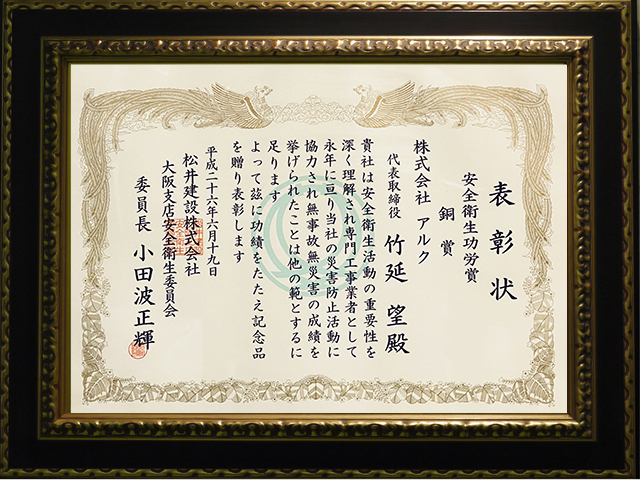 表彰状
安全衛生功労賞
銅賞
株式会社 アルク
代表取締役 竹延 望 殿
貴社は安全衛生活動の重要性を
深く理解され専門工事業者として
永年に亘り当社の災害防止活動に
協力され無事故無災害の成績を
挙げられたことは他の範とするに
足ります
よって茲に功績をたたえ記念品
を贈り表彰します
平成二十六年六月十九日
松井建設株式会社
大阪支店安全衛生委員会
委員長 小田波正輝